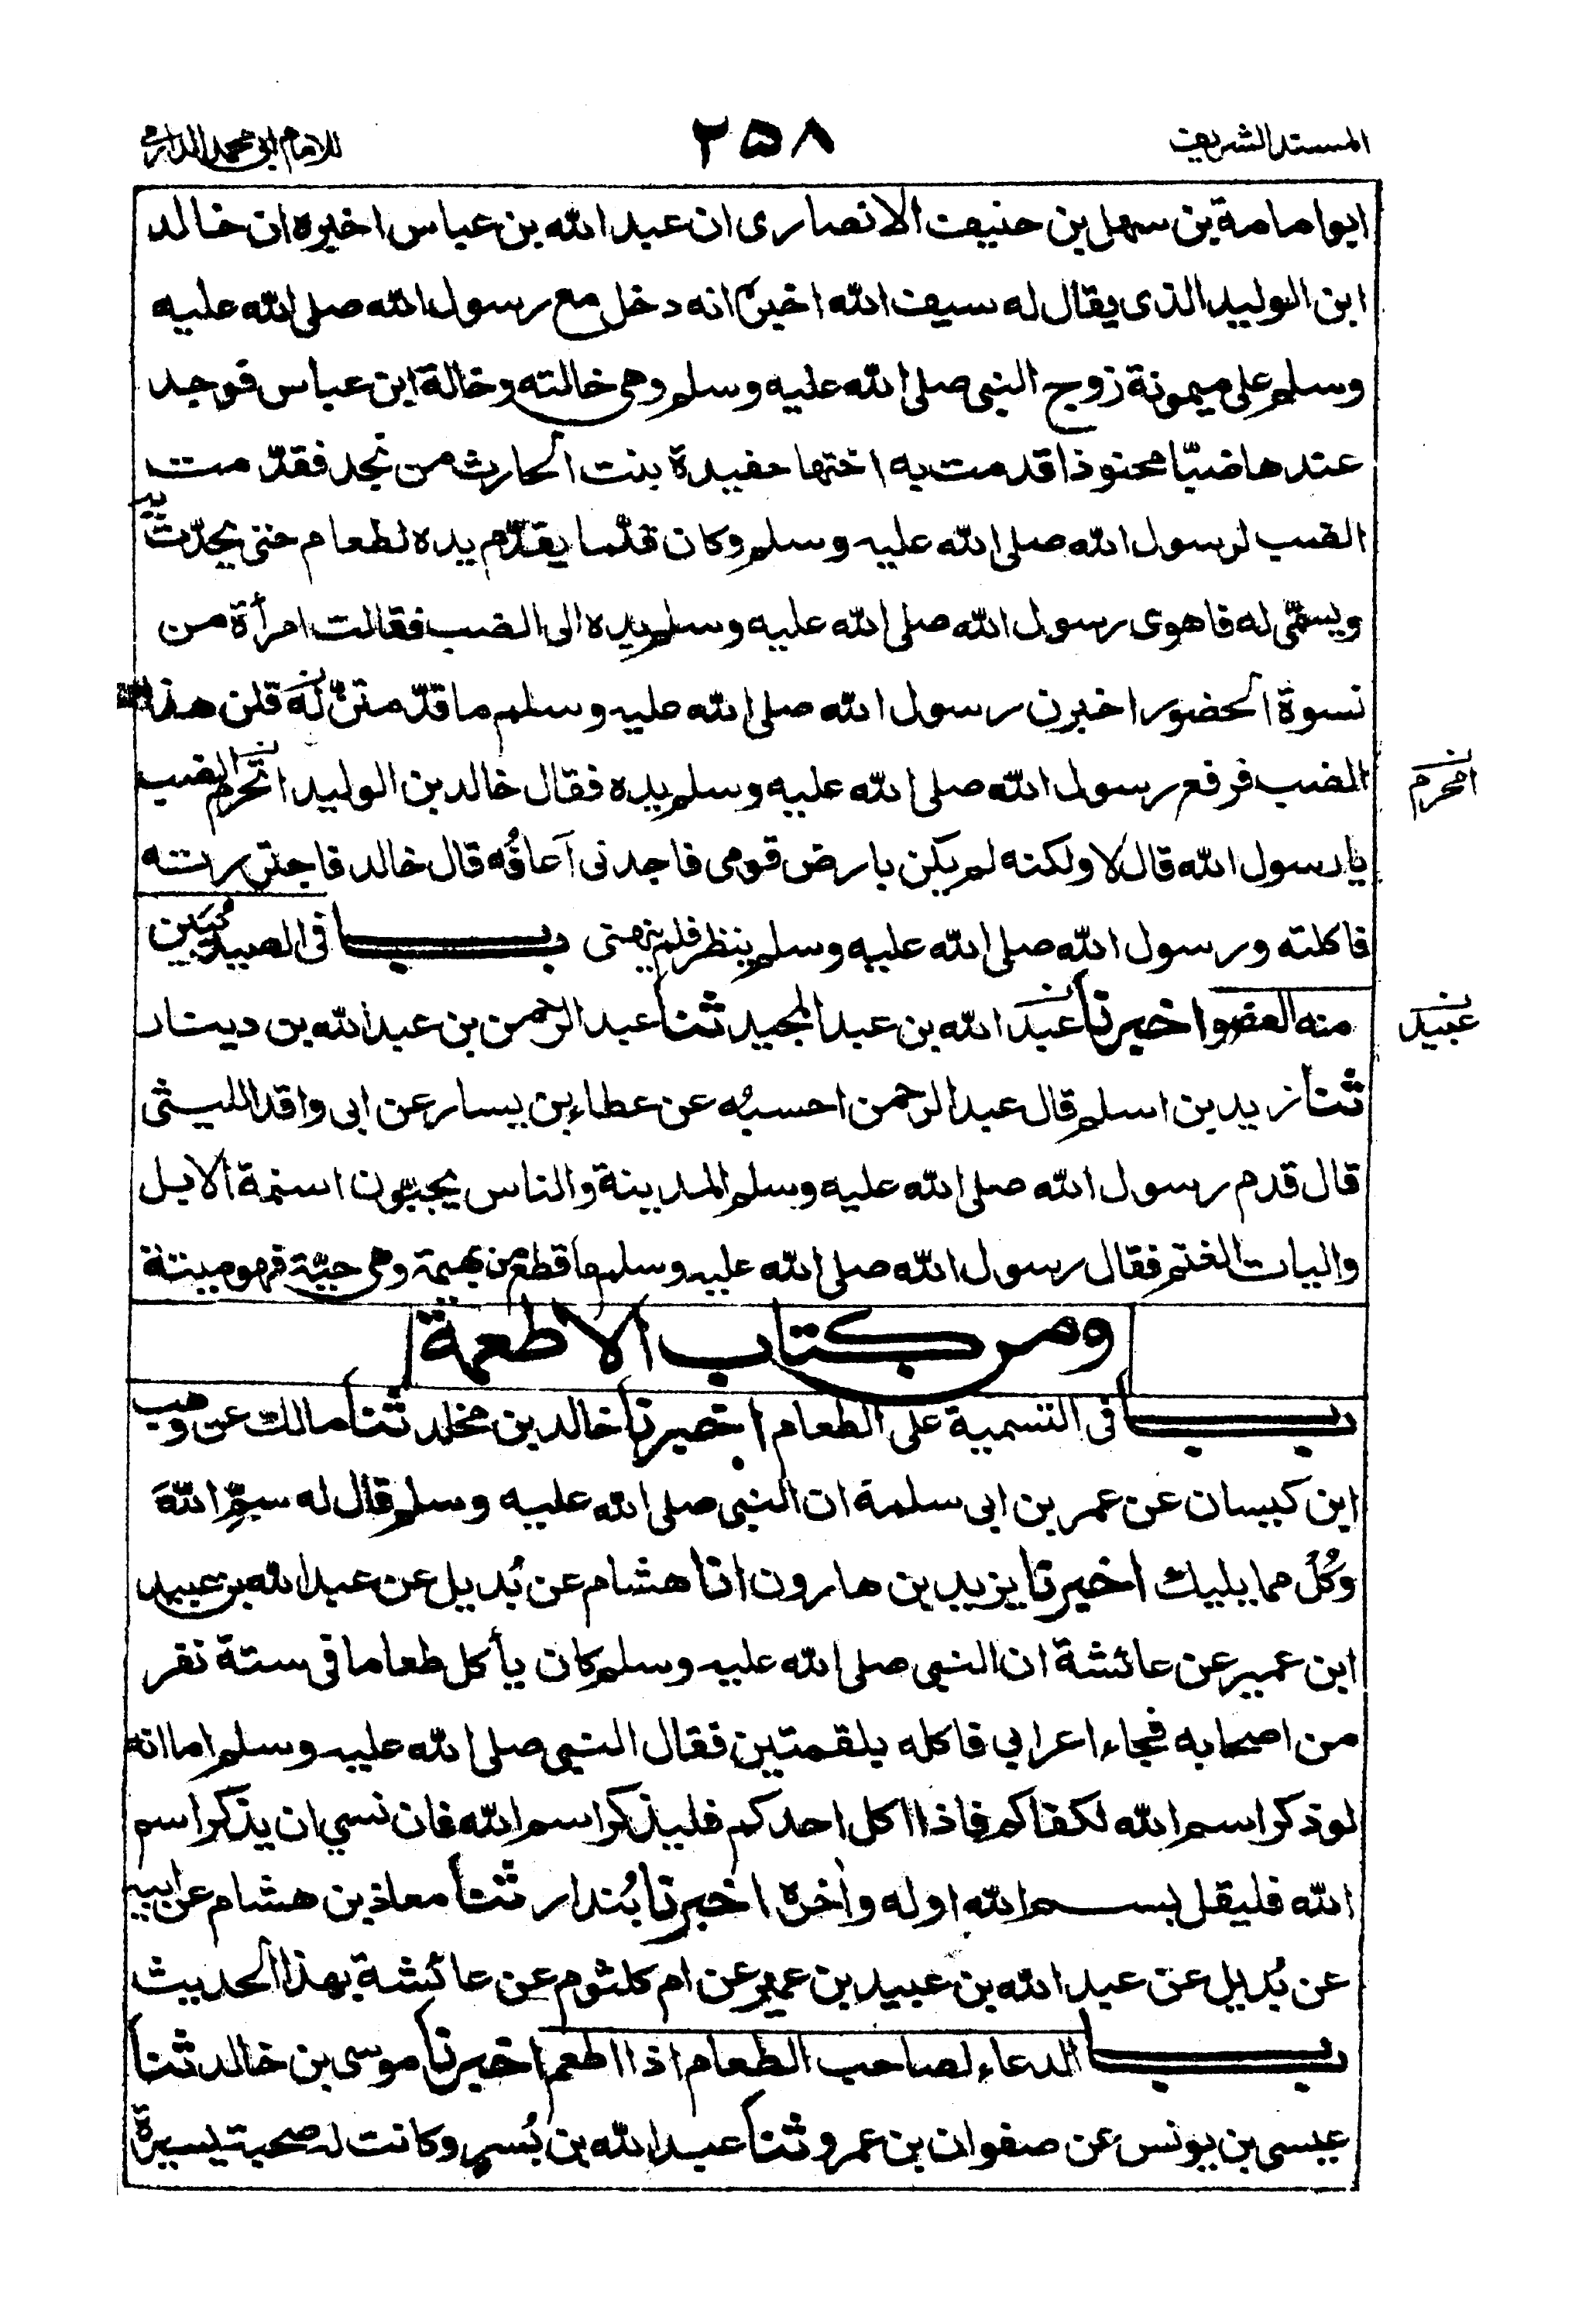 المسند الشريف
٢٥٨
للامام ابى محمد الدارمى
ابوامامة بن سهل بن حنيف الانصارى ان عبد الله بن عباس اخبره ان خالد
ابن الوليد الذى يقال له سيف الله اخبره انه دخل مع رسول الله صلى الله عليه
وسلم على ميمونة زوج النبى صلى الله عليه وسلم وهى خالته وخالة ابن عباس فوجد
عندها ضبّا محنوذا قدمت به اختها حفيدة بنت الحارث من نجد فقدّمت
الضب لرسول الله صلى الله عليه وسلم وكان قلّما يقدّم يده لطعام حتى يحدّث به
ويسمّى له فاهوى رسول الله صلى الله عليه وسلم يده الى الضب فقالت امرأة من
نسوة الحضور اخبرن رسول الله صلى الله عليه وسلم ما قدّمتنّ له قلن هذا
الضب فرفع رسول الله صلى الله عليه وسلم يده فقال خالد بن الوليد اتحرم الضب
امحرم
يا رسول الله قال لا ولكنه لم يكن بارض قومى فاجدنى اعافُه قال خالد فاجتررته
فاكلته ورسول الله صلى الله عليه وسلم ينظر فلم ينهنى باب فى الصيد يُبَين
منه العضو اخبرنا عبد الله بن عبد المجيد ثنا عبد الرحمن بن عبد الله بن دينار
عبيد
ثنا زيد بن اسلم قال عبد الرحمن احسبُه عن عطاء بن يسار عن ابى واقد الليثى
قال قدم رسول الله صلى الله عليه وسلم المدينة والناس يجبّون اسنمة الابل
واليات الغنم فقال رسول الله صلى الله عليه وسلم ما قطع من بهيمة وهى حيّة فهو ميتة
ومن كتاب الاطعمة
باب فى التسمية على الطعام اخبرنا خالد بن مخلد ثنا مالك عن وهب
ابن كيسان عن عمر بن ابى سلمة ان النبى صلى الله عليه وسلم قال له سمِّ اللهَ
وكُلْ مما يليك اخبرنا يزيد بن هارون انا هشام عن بُديل عن عبد الله بن عبيد
ابن عمير عن عائشة ان النبى صلى الله عليه وسلم كان يأكل طعاما فى ستة نفر
من اصحابه فجاء اعرابي فاكله بلقمتين فقال النبى صلى الله عليه وسلم اما انه
لو ذكر اسم الله لكفاكم فاذا اكل احدكم فليذكر اسم الله فان نسي ان يذكر اسم
الله فليقل بسم الله اوله وآخره اخبرنا بُندار ثنا معاذ بن هشام عن ابيه
عن بُديل عن عبد الله بن عبيد بن عمير عن ام كلثوم عن عائشة بهذا الحديث
باب الدعاء لصاحب الطعام اذا اطعم اخبرنا موسى بن خالد ثنا
عيسى بن يونس عن صفوان بن عمرو ثنا عبد الله بن بُسر وكانت له صحبة يسيرة